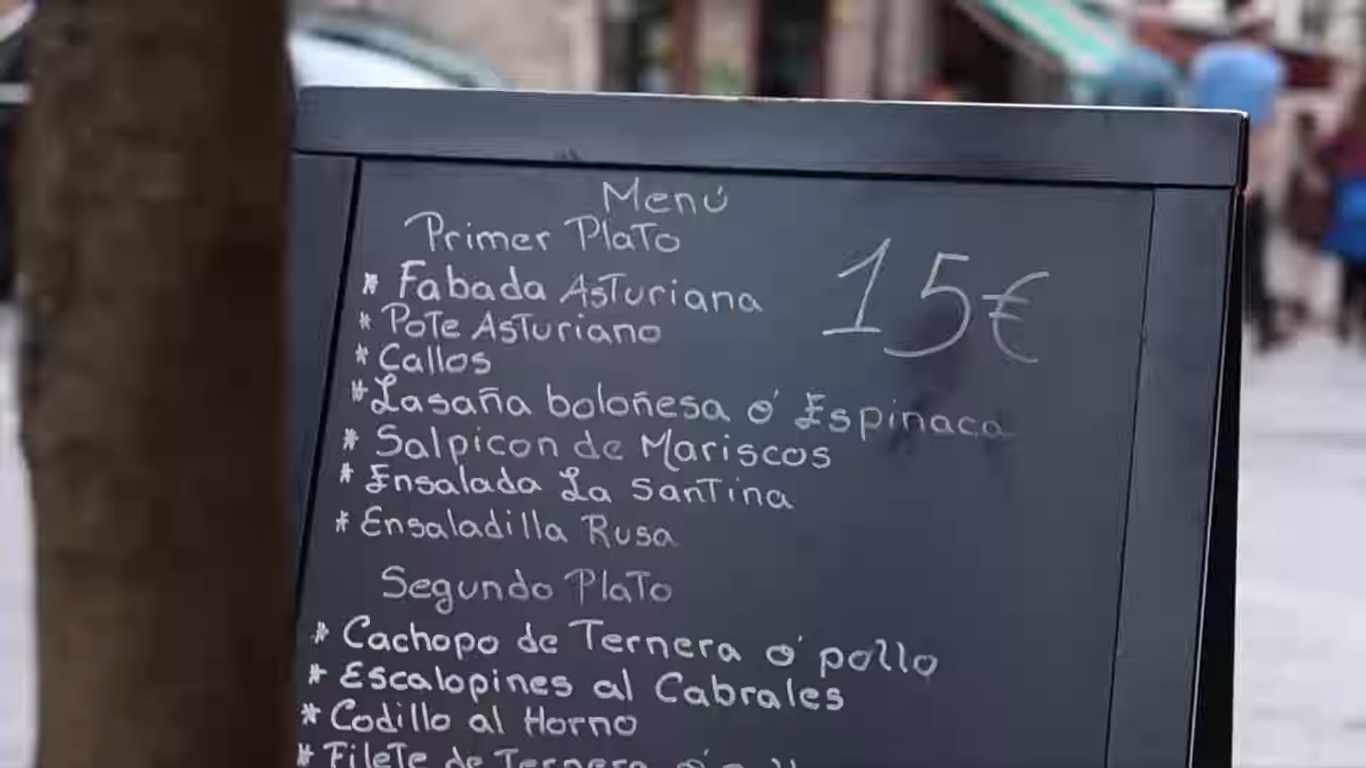 Menú
Primer Plato
15€
* Fabada Asturiana
* Pote Asturiano
* Callos
* Lasaña boloñesa ó Espinaca
* Salpicon de Mariscos
* Ensalada La Santina
* Ensaladilla Rusa
Segundo Plato
* Cachopo de Ternera ó pollo
* Escalopines al Cabrales
* Codillo al Horno
* Filete de Ternera ó